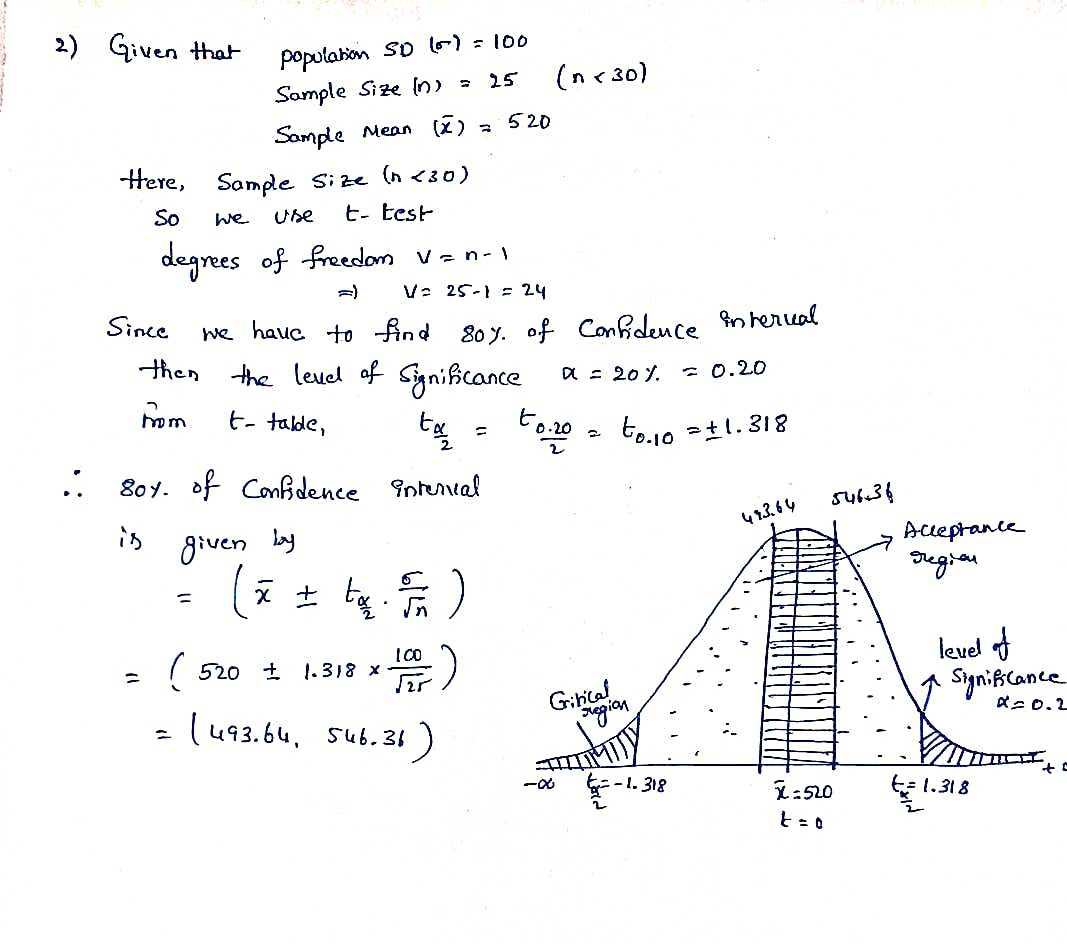 2) Given that population SD (σ) = 100
Sample Size (n) = 25 (n < 30)
Sample Mean (x̄) = 520
Here, Sample Size (n < 30)
So we use t-test
degrees of freedom ν = n-1
⇒ ν = 25-1 = 24
Since we have to find 80% of Confidence interval
then the level of Significance α = 20% = 0.20
From t-table, t_{α/2} = t_{0.20/2} = t_{0.10} = ±1.318
∴ 80% of Confidence interval
is given by
= (x̄ ± t_{α/2} . σ/√n)
= (520 ± 1.318 × 100/√25)
= (493.64, 546.36)
493.64 546.36
Acceptance
region
level of
Significance
α = 0.2
Critical
region
-∞ t_{α/2} = -1.318 x̄ = 520 t_{α/2} = 1.318 +
t = 0